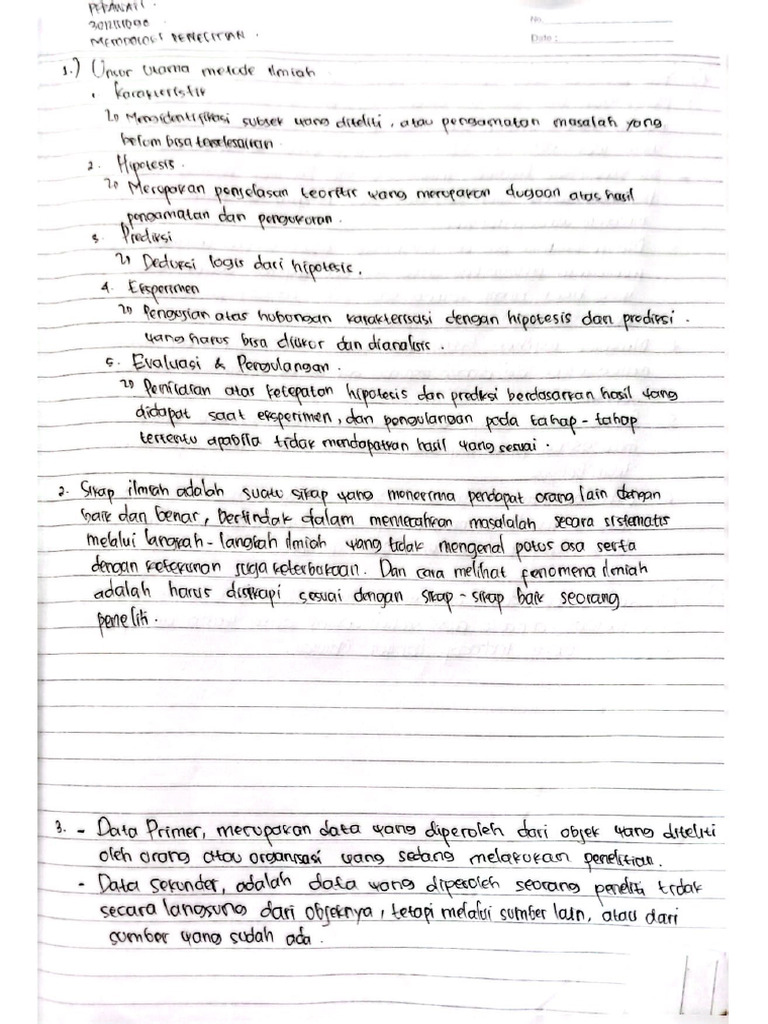 No.
Date :
METODOLOGI PENELITIAN .
1.) Unsur Utama metode ilmiah
1. Karakteristik
Mengidentifikasi subjek yang diteliti, atau pengamatan masalah yang
belum bisa terselesaikan
2. Hipotesis.
Merupakan penjelasan teoritis yang merupakan dugaan atas hasil
pengamatan dan pengukuran.
3. Prediksi
Deduksi logis dari hipotesis.
4. Eksperimen
Pengujian atas hubungan karakterisasi dengan hipotesis dan prediksi.
yang harus bisa diukur dan dianalisis.
5. Evaluasi & Pengulangan.
Penilaian atas ketepatan hipotesis dan prediksi berdasarkan hasil yang
didapat saat eksperimen, dan pengulangan pada tahap-tahap
tertentu apabila tidak mendapatkan hasil yang sesuai.
2. Sikap ilmiah adalah suatu sikap yang menerima pendapat orang lain dengan
baik dan benar, bertindak dalam memecahkan masalalah secara sistematis
melalui langkah-langkah ilmiah yang tidak mengenal putus asa serta
dengan ketekunan juga keterbukaan. Dan cara melihat fenomena ilmiah
adalah harus disikapi sesuai dengan sikap-sikap baik seorang
peneliti.
3. - Data Primer, merupakan data yang diperoleh dari objek yang diteliti
oleh orang atau organisasi yang sedang melakukan penelitian.
- Data sekunder, adalah data yang diperoleh seorang peneliti tidak
secara langsung dari objeknya, tetapi melalui sumber lain, atau dari
sumber yang sudah ada.